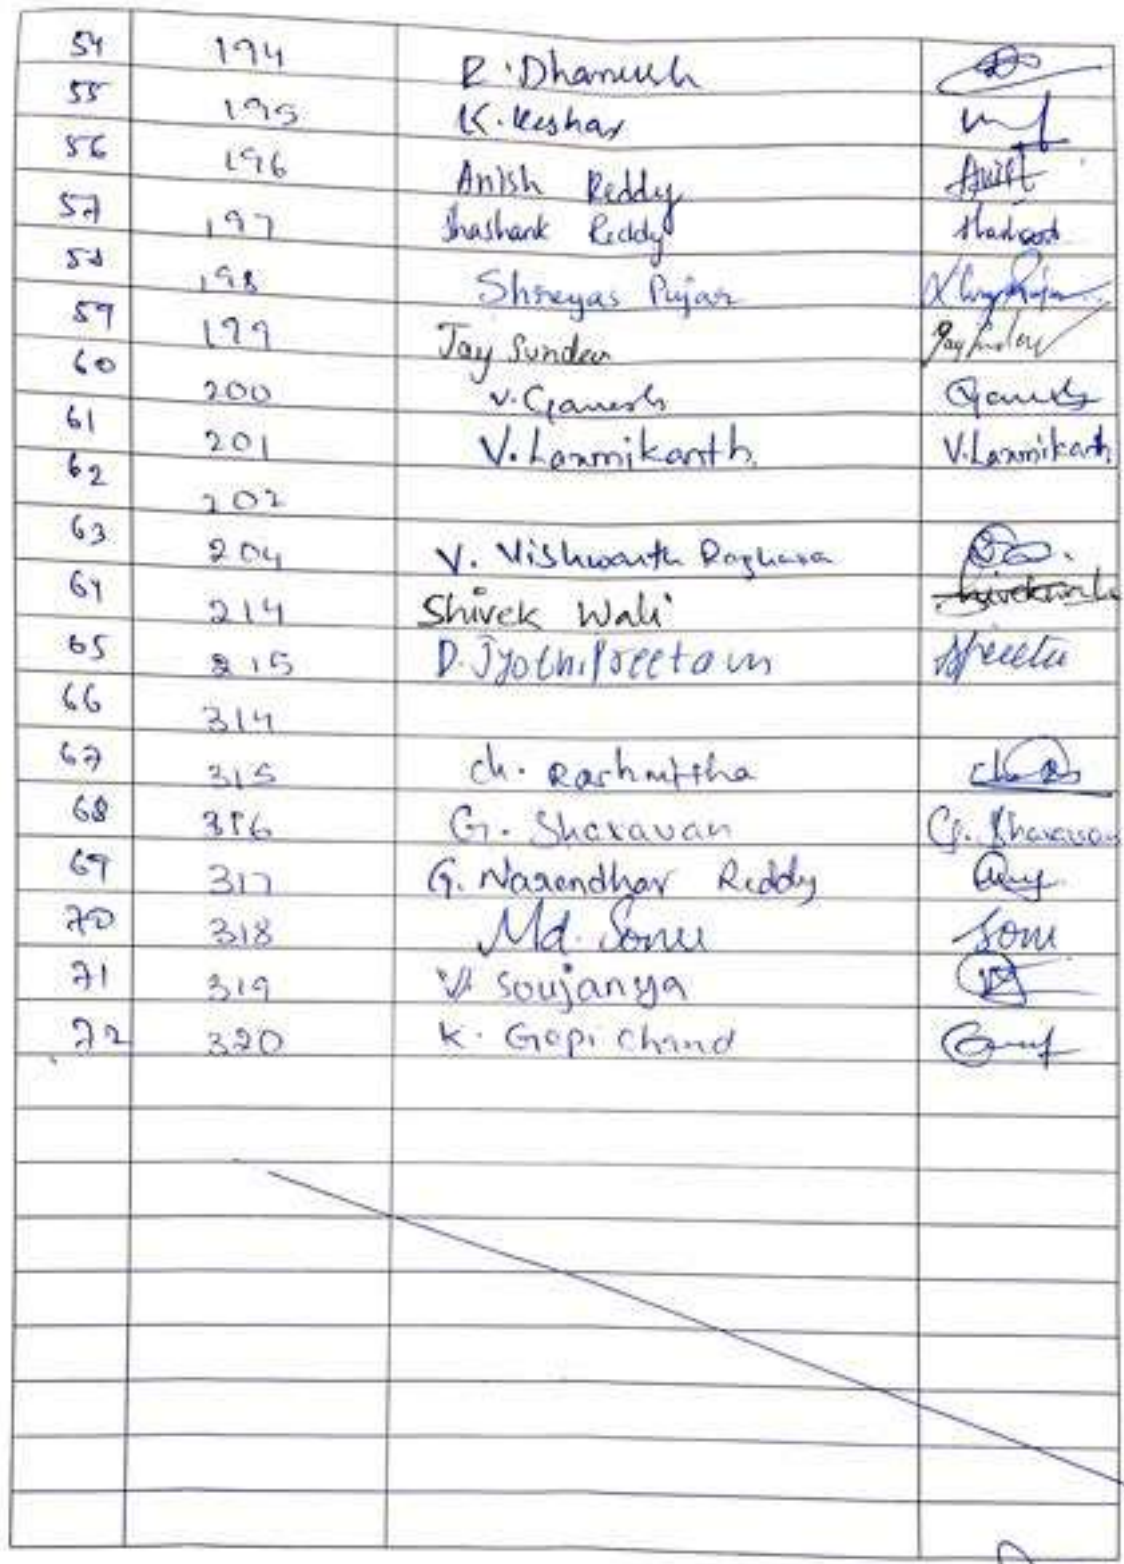 54 194 R. Dhanush
55 195 K. Keshav
56 196 Anish Reddy Anish
57 197 Shashank Reddy
58 198 Shreyas Pujar
59 199 Jay Sundar Jay Sundar
60 200 V. Ganesh Ganesh
61 201 V. Laxmikanth. V. Laxmikanth
62 202
63 204 V. Vishwanth Raghava
64 214 Shivek Wali
65 215 D. Jyothi Preetam
66 314
67 315 Ch. Rashmitha
68 316 G. Sharavan G. Sharavan
69 317 G. Narendhar Reddy
70 318 Md. Sonu Sonu
71 319 V. Soujanya
72 320 K. Gopi chand